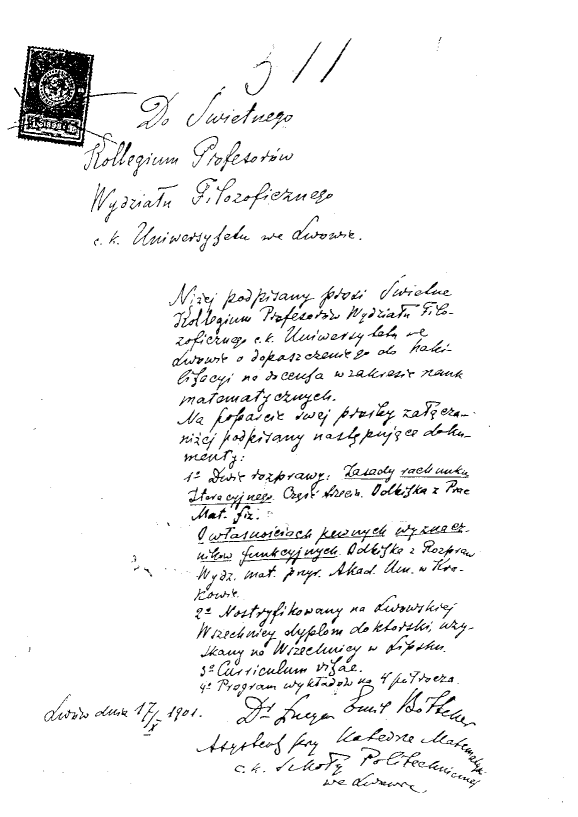 511
Do Świetnego
Kollegium Profesorów
Wydziału Filozoficznego
c. k. Uniwersytetu we Lwowie.
Niżej podpisany prosi Świetne
Kollegium Profesorów Wydziału Filo-
zoficznego c. k. Uniwersytetu we
Lwowie o dopuszczenie go do habi-
litacyi na docenta w zakresie nauk
matematycznych.
Na poparcie swej prośby załącza
niżej podpisany następujące doku-
menty:
1º Dwie rozprawy: Zasady rachunku
iteracyjnego. Część trzecia. Odbitka z Prac
Mat. fiz.
O własnościach pewnych wyznacz-
ników funkcyjnych. Odbitka z Rozpraw
Wydz. mat. przyr. Akad. Um. w Kra-
kowie.
2º Nostryfikowany na Lwowskiej
Wszechnicy dyplom doktorski, uzy-
skany na Wszechnicy w Lipsku.
3º Curriculum vitae.
4º Program wykładów na 4 półrocza.
Lwów dnia 17/X 1901.
Dr Lucyan Emil Böttcher
Asystent przy Katedrze Matematyki
c. k. Szkoły Politechnicznej
we Lwowie.